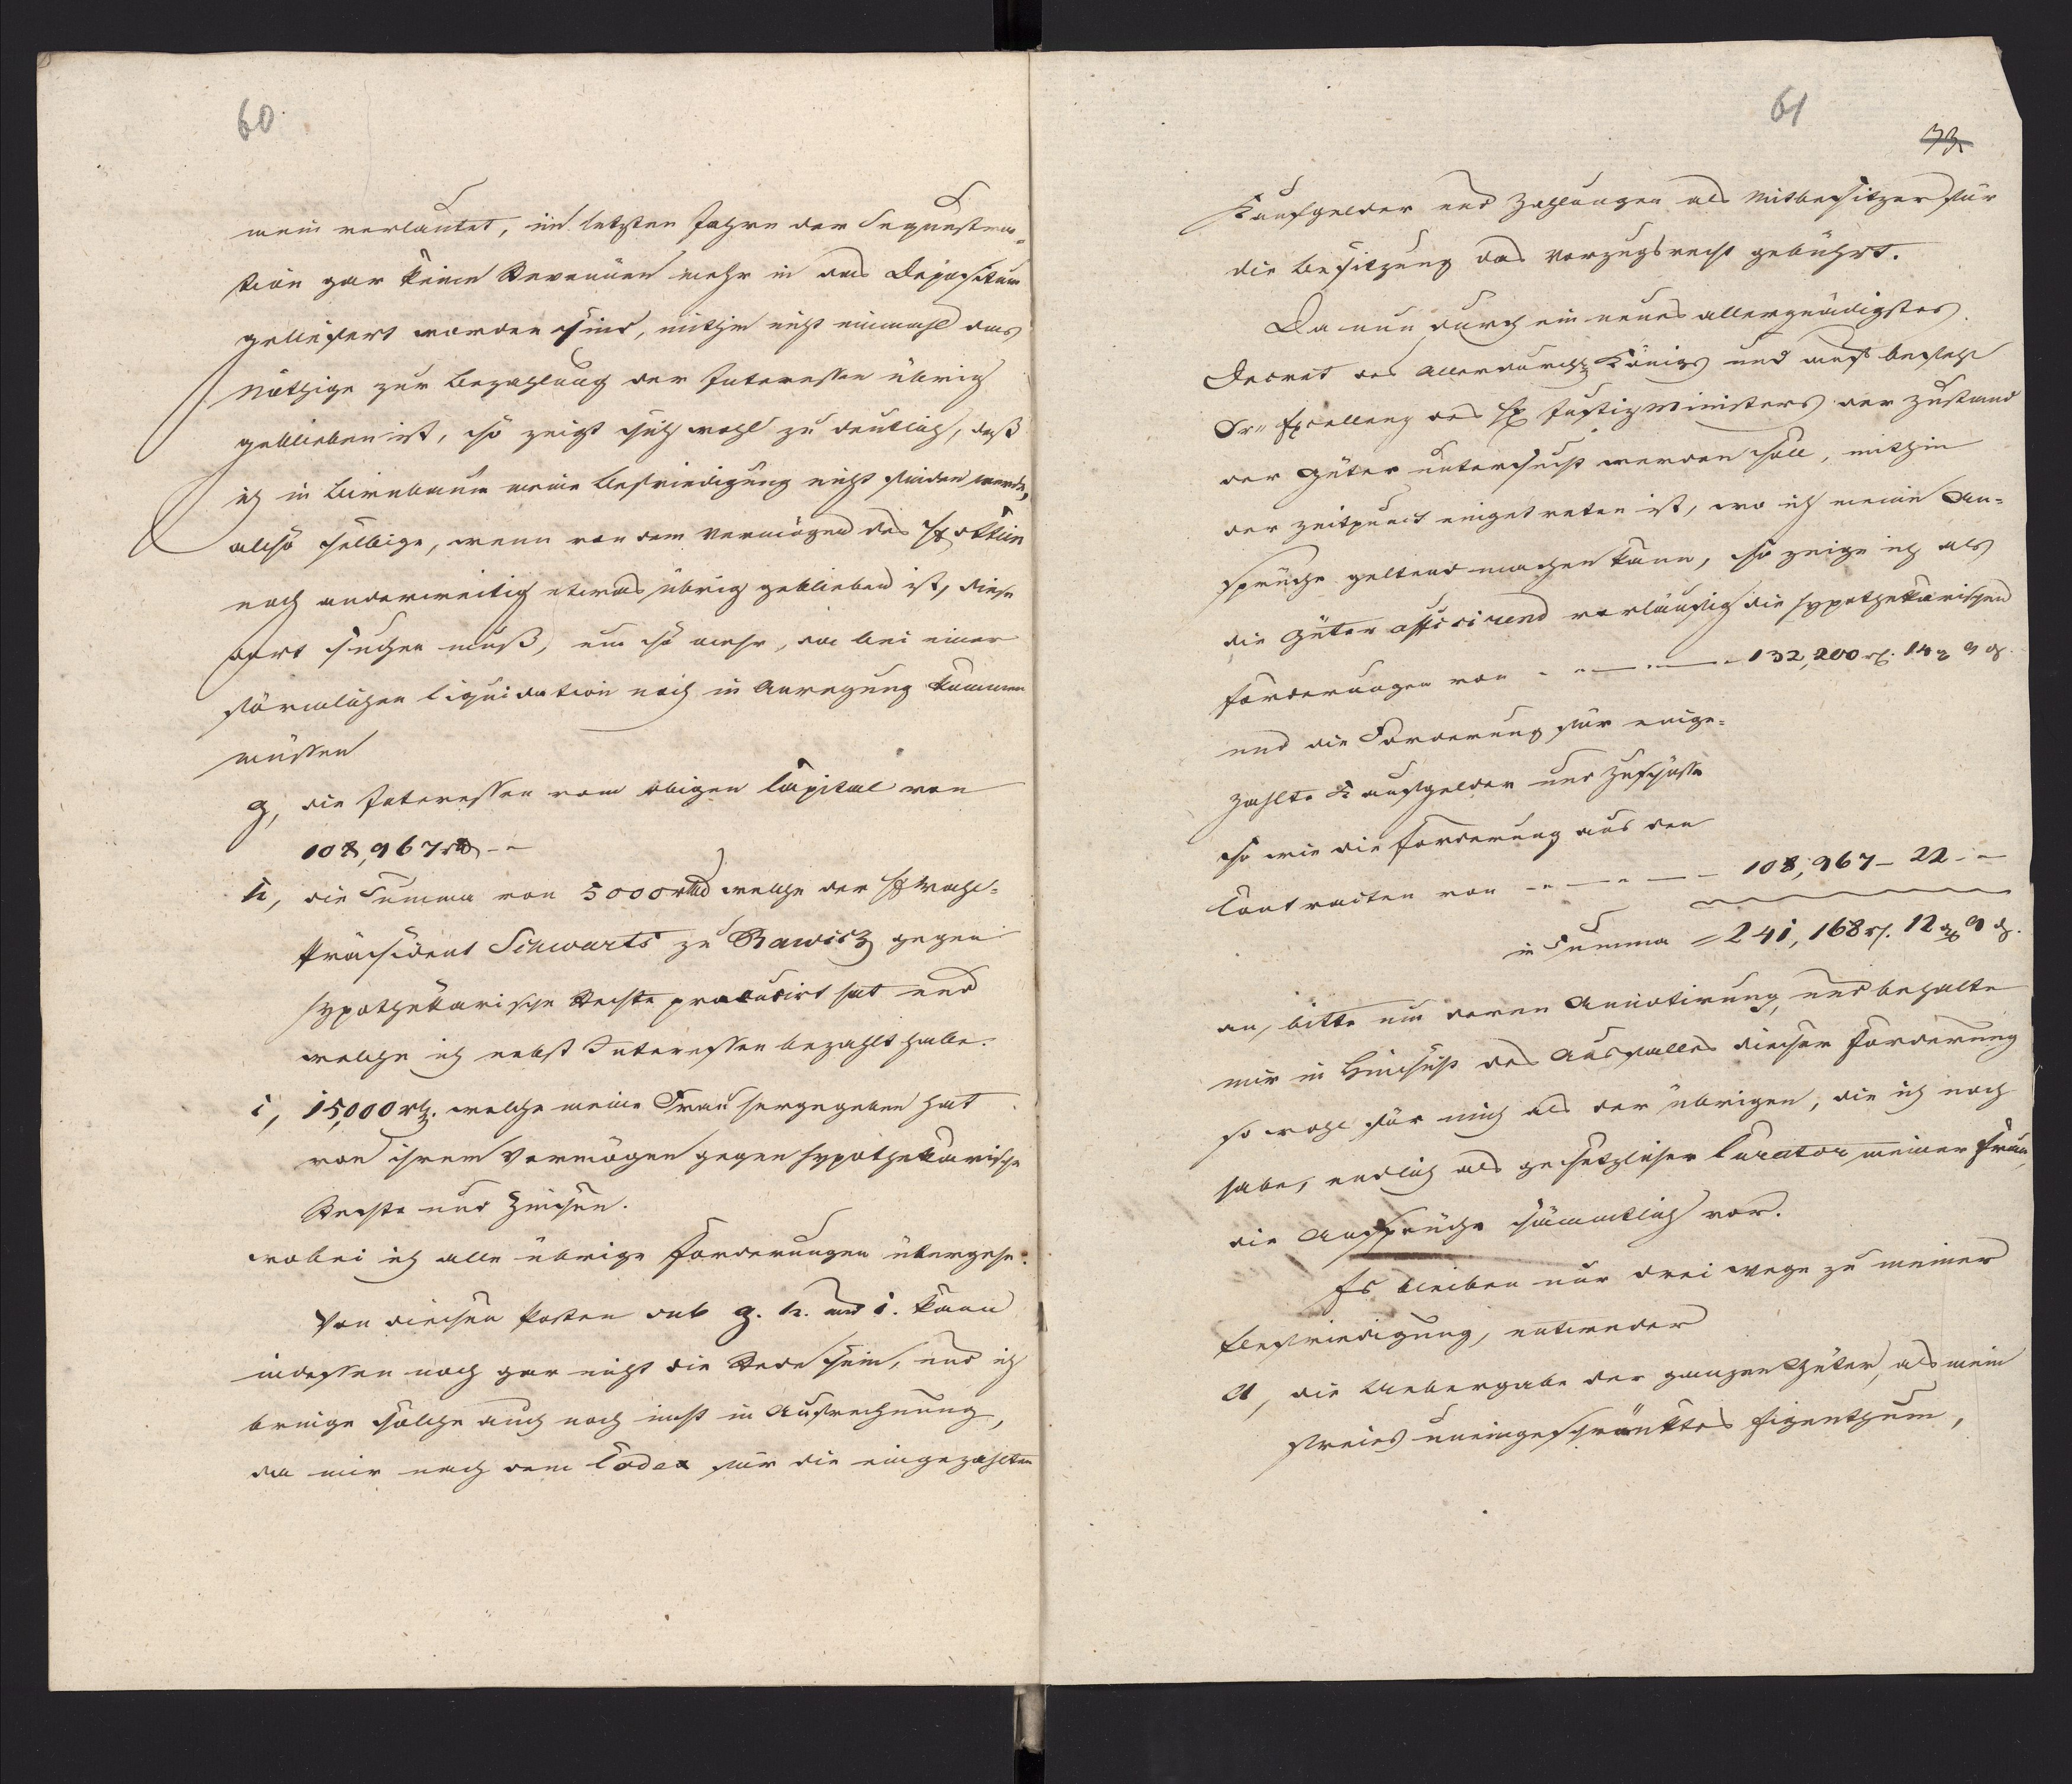 60
mein verlautet, im letzten Jahre der Sequestra-
tion gar keine Revenüen mehr in das Depositum
geliefert worden sind, mithin nicht einmahl das
Nöthige zur Bezahlung der Interessen übrig
geblieben ist, so zeigt sich wohl zu deutlich, daß
ich in Birnbaum meine Befriedigung nicht finden werde,
also selbige, wenn von dem Vermögen des H
noch anderweitig etwas übrig geblieben ist, diese
dort suchen muß, um so mehr, da bei einer
förmlichen Liquidation noch in Anregung kommen
müssen
g, die Interessen vom obigen Capital von
108,967 rtl - -
h, die Summa von 5000 rtl welche der H
Präsident Schwarts zu Rawicz gegen
hypothekarische Rechte hat und
welche ich nebst Interessen bezahlt habe.
i, 15,000 rtl. welche meine Frau hergegeben hat
von ihrem Vermögen gegen hypothekarische
Rechte und Zinsen.
wobei ich alle übrige Forderungen übergehe.
Von diesen Posten sub g. h. und i. kann
indessen noch gar nicht die Rede sein, und ich
bringe solche auch noch nicht in Aufrechnung,
da mir nach dem Codex für die eingezahlten
61
33
Kaufgelder und Zahlungen als Mitbesitzer für
die Besitzung das Vorzugsrecht gebührt.
Da nun durch ein neues allergnädigstes
Decret des Allerdurchl Königs und auf Befehl
Sr. Excellenz des H Justizministers der Zustand
der Güter untersucht werden soll, mithin
der Zeitpunct eingetreten ist, wo ich meine An-
sprüche geltend machen kann, so zeige ich als
die Güter afficirend vorläufig die hypothekarischen
Forderungen von - - - - 132,200 rtl. 14 g 9 d.
und die Forderung für einge-
zahlte Kaufgelder und Zuschüsse
so wie die Forderung aus den
Contracten von - - - - 108,967 - 22 - -
in Summa = 241,168 rtl. 12 g 9 d.
an, bitte um deren Annotirung, und behalte
mir in Hinsicht des Ausfalles dieser Forderung
so wohl für mich als der übrigen, die ich noch
habe, endlich als gesetzlicher Curator meiner Frau,
die Ansprüche sämmtlich vor.
Es bleiben nur drei Wege zu meiner
Befriedigung, entweder
A, die Uebergabe der ganzen Güter, als mein
freies uneingeschränktes Eigenthum,